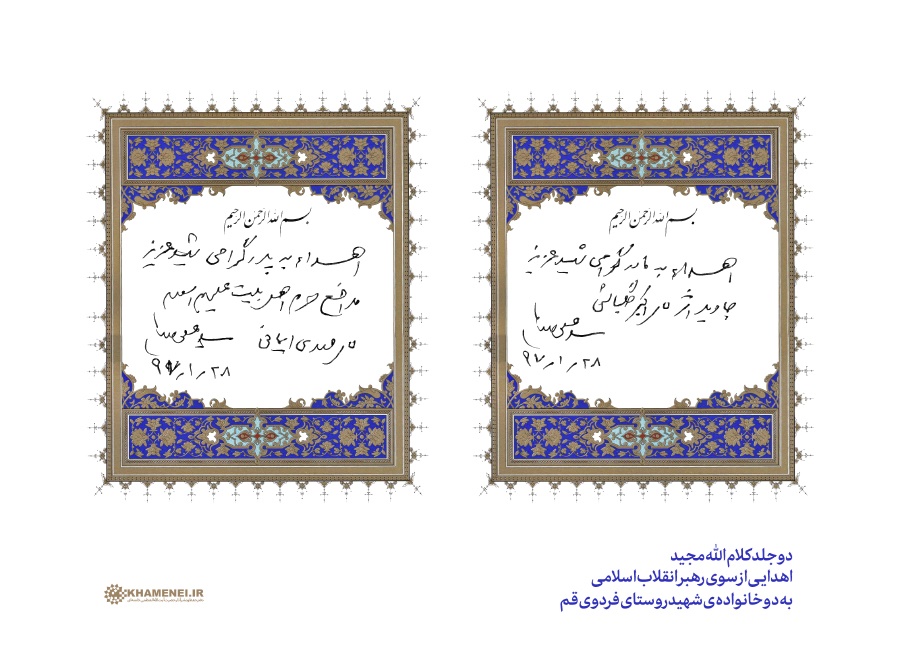 بسم الله الرحمن الرحیم
اهداء به مادر گرامی شهید عزیز
جاوید اثر علی اکبر
۹۷٫۱٫۲۸
بسم الله الرحمن الرحیم
اهداء به پدر گرامی شهید عزیز
مدافع حرم اهل بیت علیهم السلام
علی مهدی ایمانی
۹۷٫۱٫۲۸
دو جلد کلام‌الله مجید
اهدایی از سوی رهبر انقلاب اسلامی
به دو خانواده‌ی شهید روستای فردوی قم
KHAMENEI.IR